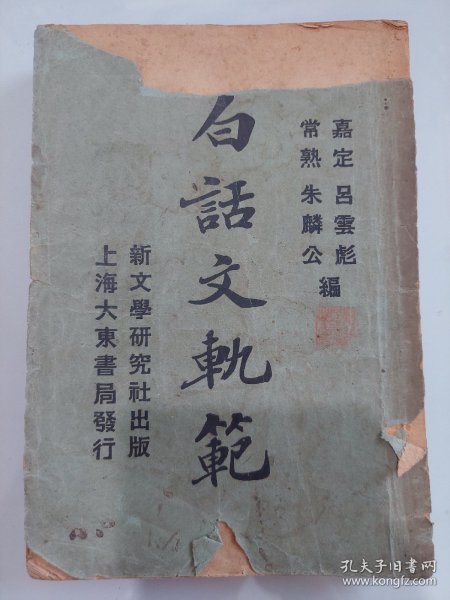 嘉定 呂雲彪
常熟 朱麟公 編
白話文軌範
新文學研究社出版
上海大東書局發行
孔夫子旧书网
www.kongfz.com